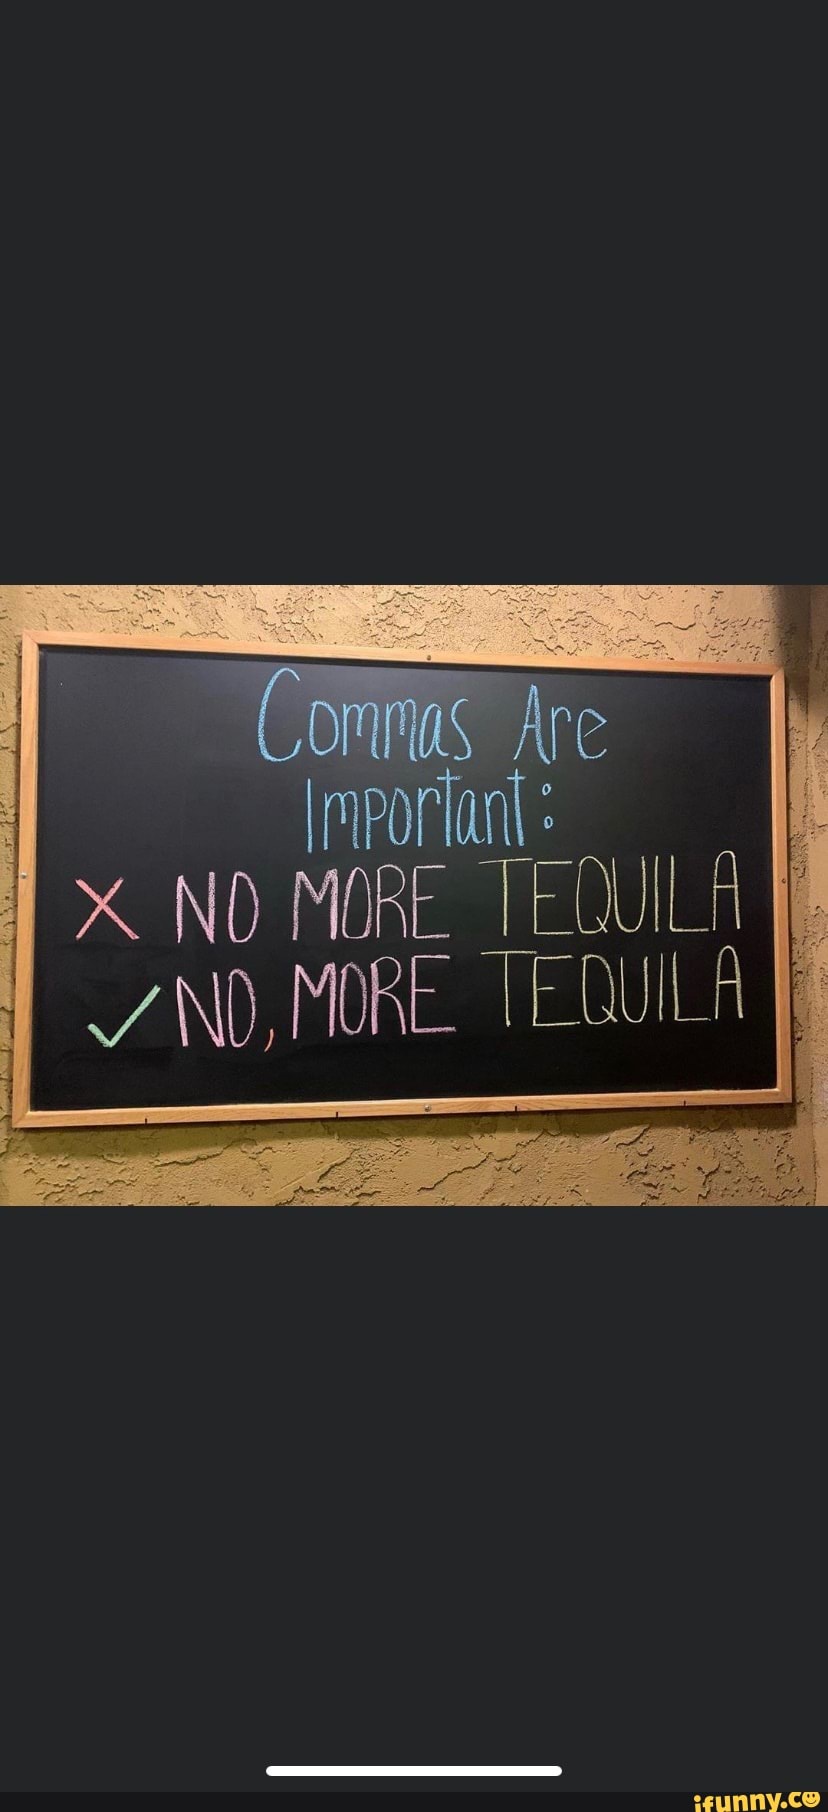 Commas Are
Important:
X NO MORE TEQUILA
✓ NO, MORE TEQUILA
ifunny.co